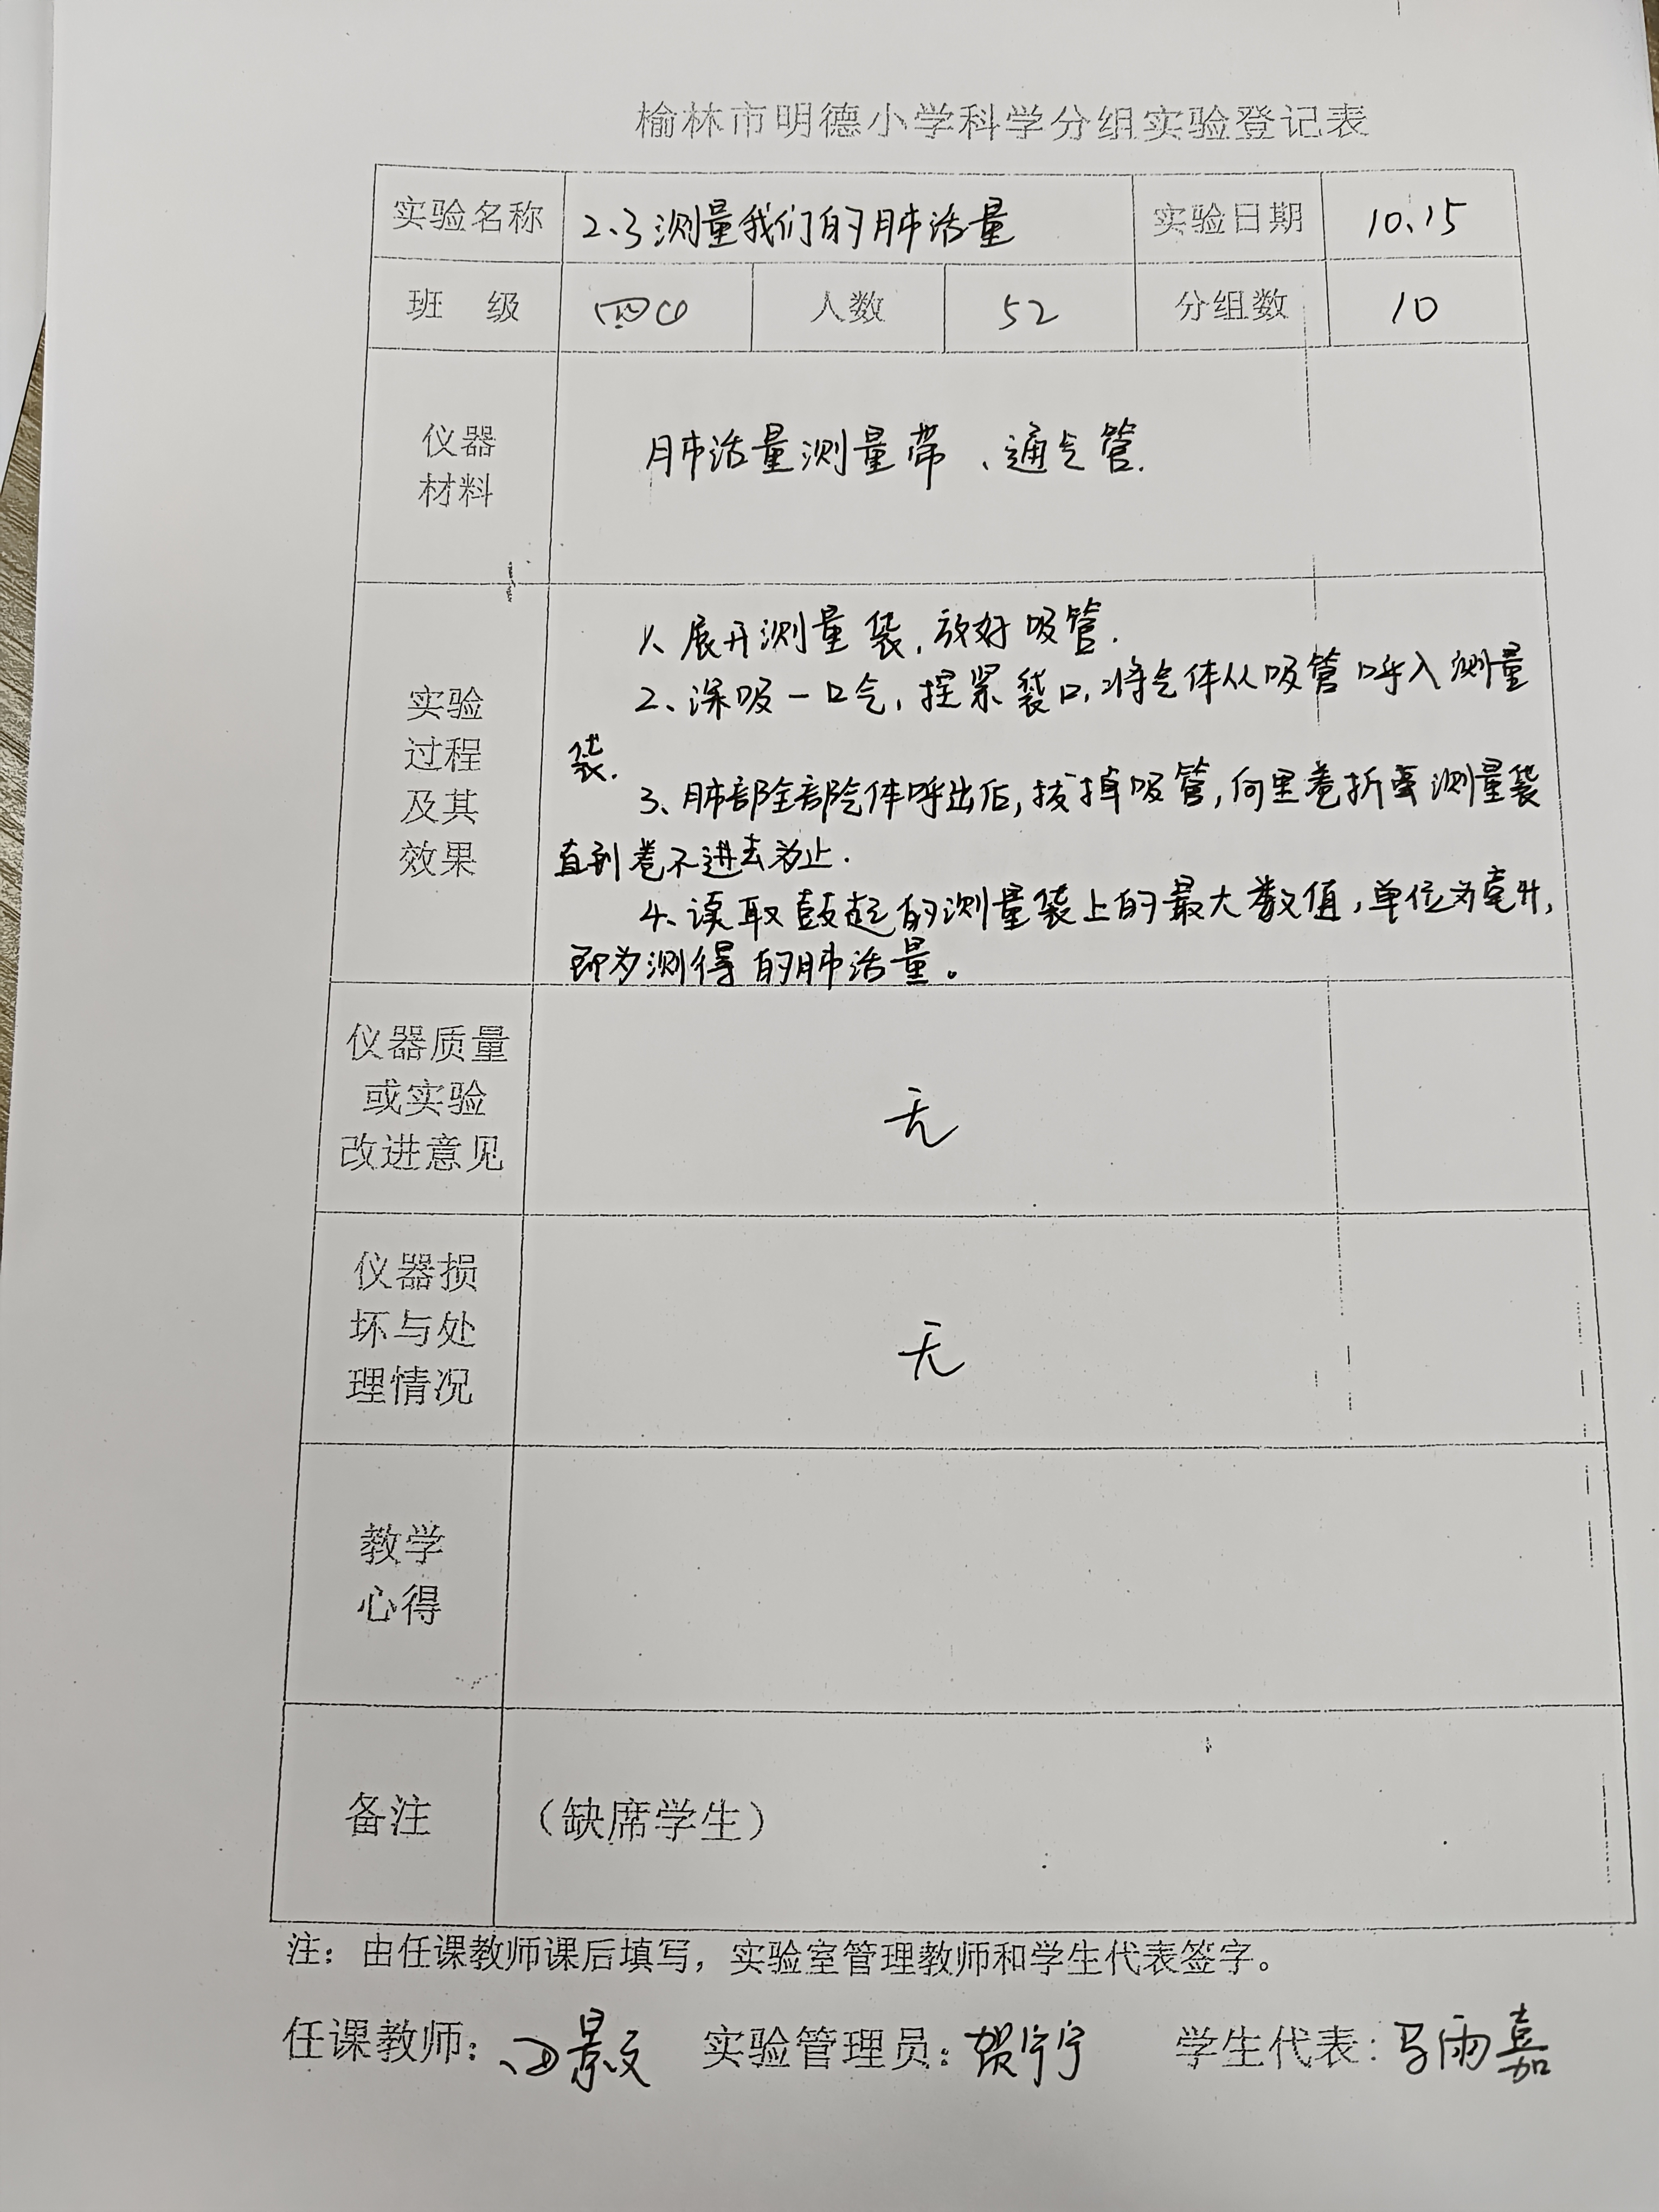 榆林市明德小学科学分组实验登记表
实验名称 2.3测量我们的肺活量 实验日期 10.15
班 级 四 人数 52 分组数 10
仪器
材料
肺活量测量带、通气管.
实验
过程
及其
效果
1、展开测量袋,放好吸管.
2、深吸一口气,捏紧袋口,将气体从吸管呼入测量
袋.
3、肺部全部气体呼出后,拔掉吸管,向里卷折 测量袋
直到卷不进去为止.
4、读取鼓起的测量袋上的最大数值,单位为毫升,
即为测得的肺活量。
仪器质量
或实验
改进意见
无
仪器损
坏与处
理情况
无
教学
心得
备注 (缺席学生)
注:由任课教师课后填写,实验室管理教师和学生代表签字。
任课教师: 景文 实验管理员:贺宁宁 学生代表:马雨嘉